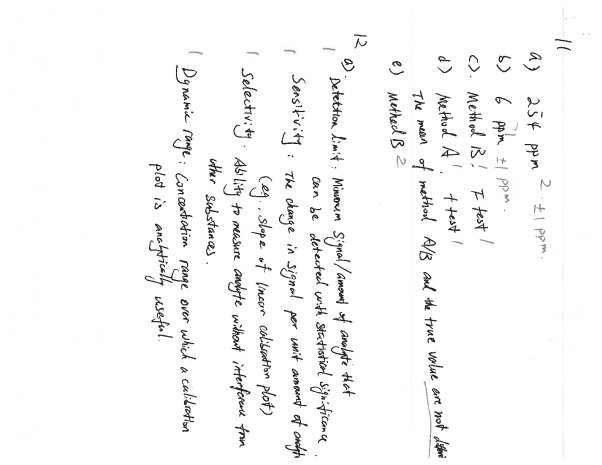 11
a) 254 ppm 2 ±1 ppm.
b) 6 ppm 1 ±1 ppm.
c). Method B! F test 1
d) Method A! t test 1
The mean of method A/B and the true value are not
e) Method B 2
12
a). 1 Detection limit: Minimum signal/amount of analyte that
can be detected with statistical significance.
1 Sensitivity: The change in signal per unit amount of
(eg. slope of linear calibration plot)
1 Selectivity: Ability to measure analyte without interference from
other substances.
1 Dynamic range: Concentration range over which a calibration
plot is analytically useful.